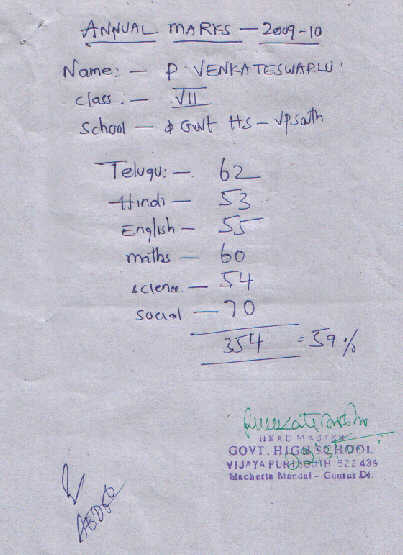 ANNUAL MARKS - 2009-10
Name: - P. VENKATESWARLU
class: - VII
School - Govt HS - Vpsouth
Telugu: - 62
Hindi - 53
English - 55
maths - 60
science - 54
social - 70
354 = 59%
HEAD MASTER
GOVT. HIGH SCHOOL
VIJAYAPURI SOUTH 522 439
Macherla Mandal - Guntur Dt.